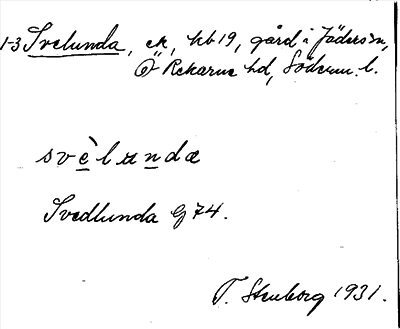 1-3 Svelunda, ek, kb 19, gård i Jäders sn,
Ö Rekarne hd, Söderm. l.
svèlunda
Svedlunda G 74.
T. Stenborg 1931.